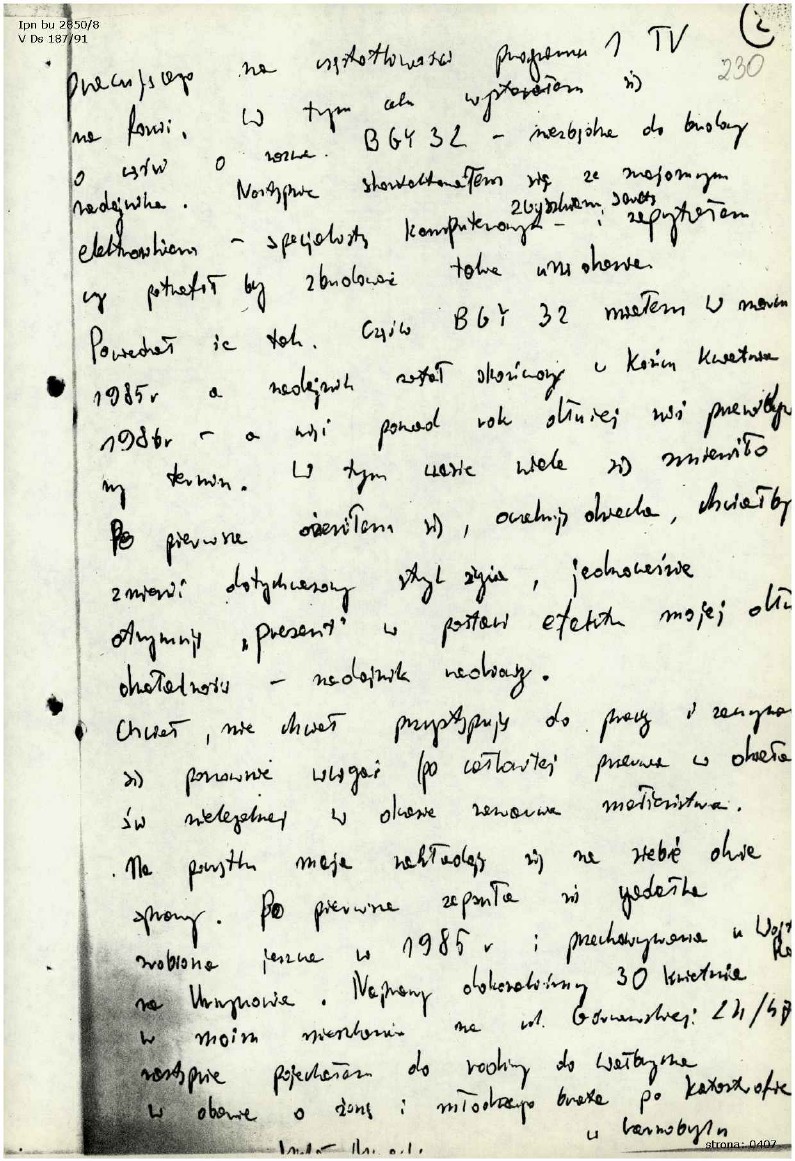 Ipn bu 2850/8
V Ds 187/91
2
230
pracującego na częstotliwości programu 1 TV
na fonii. W tym celu wystarałem się
o część o nazwie BGY 32 – niezbędne do budowy
nadajnika. Następnie skontaktowałem się ze znajomym
Zbyszkiem
elektronikiem – specjalistą komputerowym – i zapytałem
czy potrafił by zbudować takie urządzenie.
Powiedział że tak. Część BGY 32 miałem w marcu
1985r a nadajnik został skończony w końcu kwietnia
1986r – a więc ponad rok dłużej niż przewidy
ny termin. W tym czasie wiele się zmieniło
Po pierwsze ożeniłem się, oczekuję dziecka, chciałby
zmienić dotychczasowy styl życia, jednocześnie
otrzymuję „prezent" w postaci efektu mojej dłu
działalności – nadajnik nadawczy.
Chciał, nie chciał przystępuję do pracy i zaczyna
się ponownie wciągać (po całkowitej przerwie w działa
ść nielegalnej w okresie zawarcia małżeństwa.
Na początku maja nakładają się na siebie dwie
sprawy. Po pierwsze zepsuła się
zrobiona jeszcze w 1985 r i przechowywana u Wojt
na Ursynowie. Naprawy dokonaliśmy 30 kwietnia
w moim mieszkaniu na ul. 24/47
następnie pojechałem do rodziny do Wałbrzycha
w obawie o żonę i młodszego brata po katastrofie
w Czarnobylu
strona: 0407